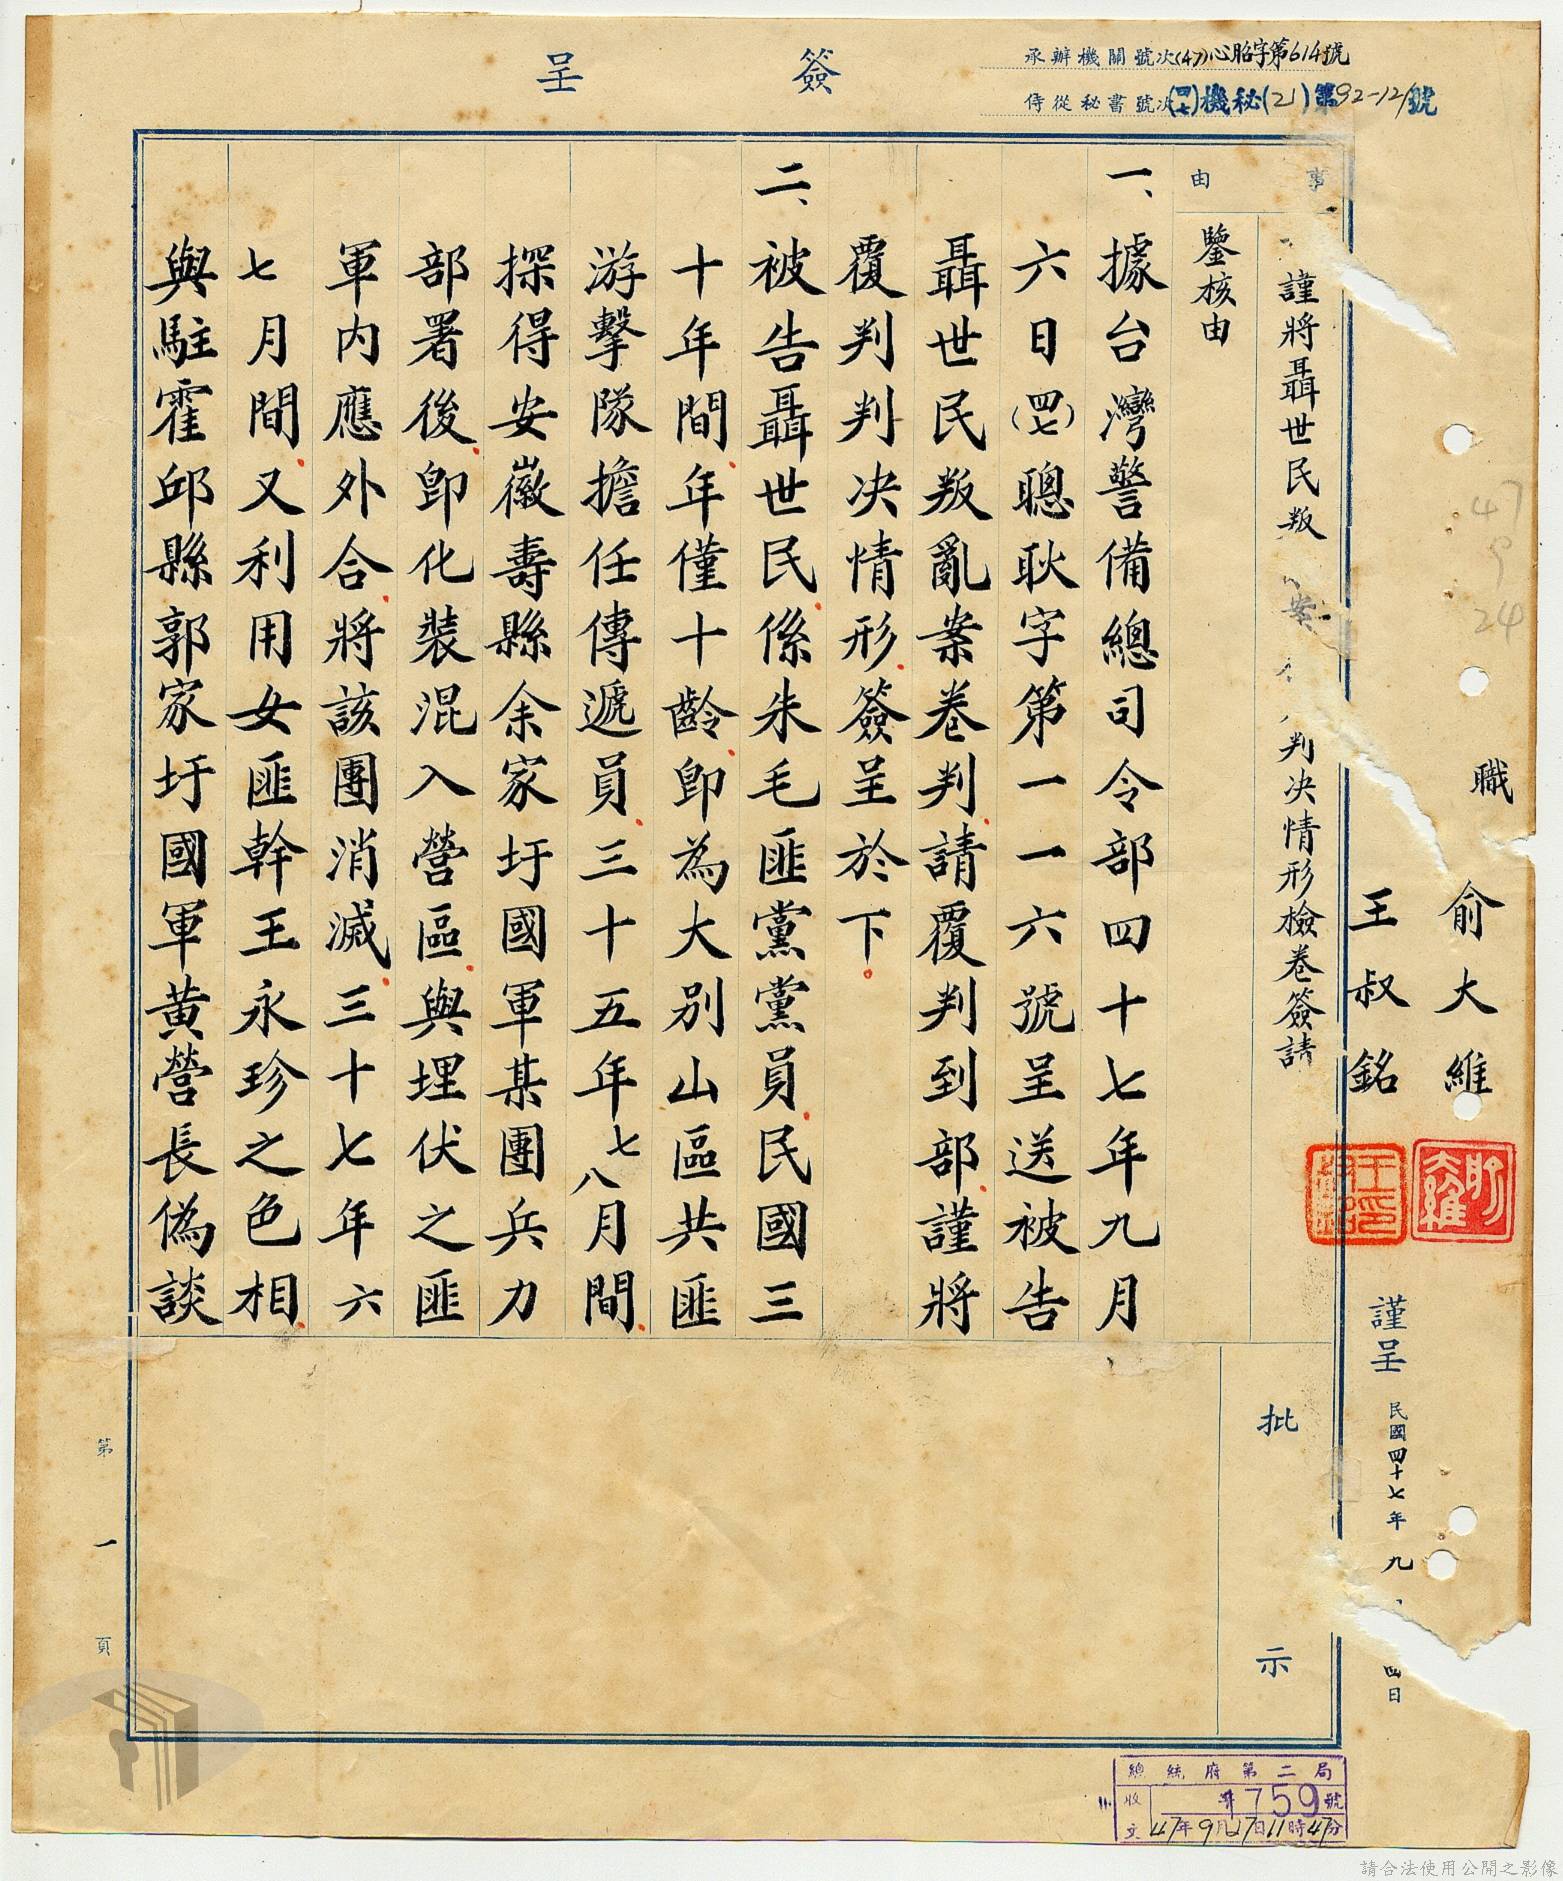 簽呈
承辦機關號次(47)心昭字第614號
侍從秘書號次(四七)機秘(21)第92-121號
事由
謹將聶世民叛 案 判決情形檢卷簽請
鑒核由
一、據台灣警備總司令部四十七年九月
六日(四七)聰耿字第一一一六號呈送被告
聶世民叛亂案卷判請覆判到部謹將
覆判判決情形簽呈於下
二、被告聶世民係朱毛匪黨黨員民國三
十年間年僅十齡即為大別山區共匪
游擊隊擔任傳遞員三十五年七八月間
探得安徽壽縣余家圩國軍某團兵力
部署後即化裝混入營區與埋伏之匪
軍內應外合將該團消滅三十七年六
七月間又利用女匪幹王永珍之色相
與駐霍邱縣郭家圩國軍黃營長偽談
職
俞大維
王叔銘
謹呈
民國四十七年九 四日
47
9
24
批示
第一頁
總統府第二局
收文
759號
47年9月27日11時47分
請合法使用公開之影像